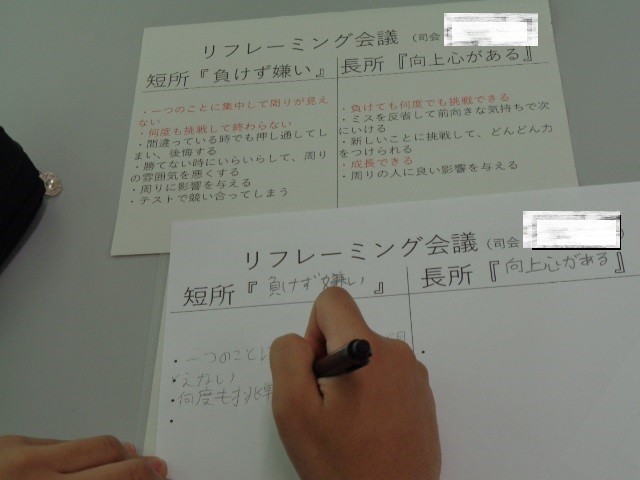 リフレーミング会議 （司会
短所『負けず嫌い』 長所『向上心がある』
・一つのことに集中して周りが見え
ない
・何度も挑戦して終わらない
・間違っている時でも押し通してし
まい、後悔する
・勝てない時にいらいらして、周り
の雰囲気を悪くする
・周りに影響を与える
・テストで競い合ってしまう
・負けても何度でも挑戦できる
・ミスを反省して前向きな気持ちで次
にいける
・新しいことに挑戦して、どんどん力
をつけられる
・成長できる
・周りの人に良い影響を与える
リフレーミング会議 （司会 ）
短所『負けず嫌い』 長所『向上心がある』
・一つのことに
えない
・何度も挑戦
・
・